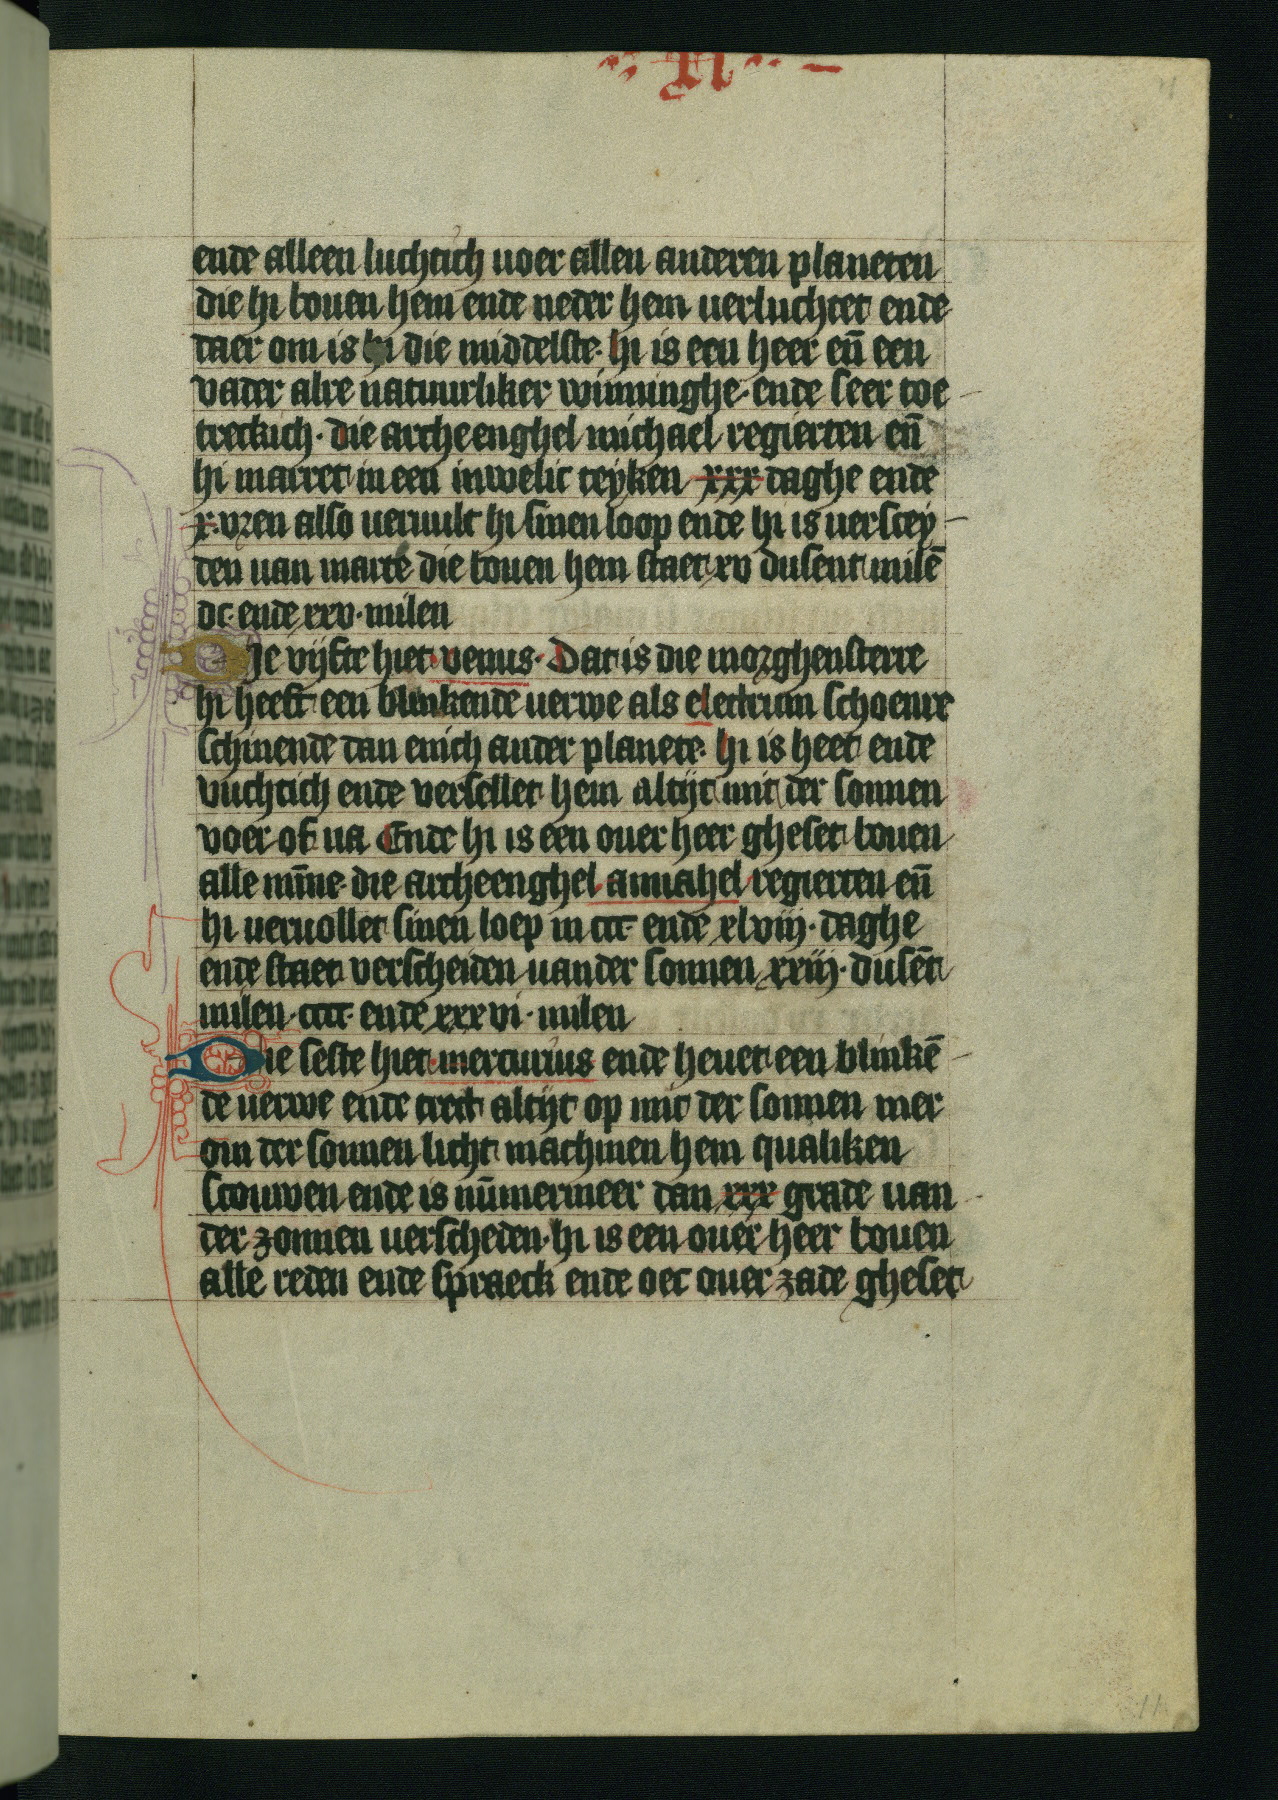 ende alleen luchtich voer allen anderen planeten
die hi boven hem ende neder hem verluchtet ende
daer om is hi die middelste. hi is een heer eñ een
vader alre natuurliker winninghe. ende seer toe
treckich. die archeenghel michael regierten eñ
hi marret in een inwelic teyken xxx daghe ende
x. vren also vervult hi sinen loop ende hi is verscey
den van marte die boven hem staet xv dusent milē
dc. ende xxv. milen
Die vijfte hiet. venus. Dat is die morghensterre
hi heeft een blinkende verwe als electrum schoenre
schinende dan enich ander planete. hi is heet ende
vuchtich ende versellet hem altijt mit der sonnen
voer of na Ende hi is een over heer gheset boven
alle mīne. die archeenghel. annahel regierten eñ
hi vervollet sinen loep in ccc. ende xlviij. daghe
ende staet verscheiden van der sonnen xxiij. dusēt
milen. cccc. ende xxxvi. milen
Die seste hiet. mercurius ende hevet een blinkē
de verwe ende treckt altijt op mit der sonnen mer
om der sonnen licht machmen hem qualiken
scouwen ende is nūmermeer dan xxx grade van
der zonnen verscheden. hi is een over heer boven
alle reden ende spraeck ende oec over zade gheset